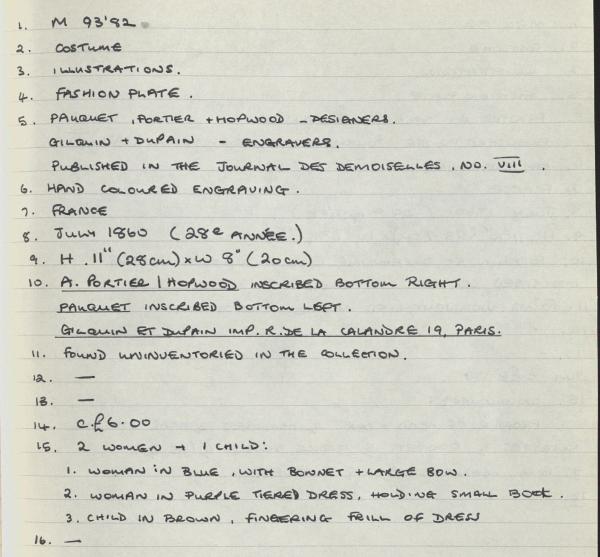 1. M 93'82
2. COSTUME
3. ILLUSTRATIONS.
4. FASHION PLATE.
5. PAUQUET, PORTIER + HOPWOOD - DESIGNERS.
GILQUIN + DUPAIN - ENGRAVERS.
PUBLISHED IN THE JOURNAL DES DEMOISELLES, NO. VIII.
6. HAND COLOURED ENGRAVING.
7. FRANCE
8. JULY 1860 (28e ANNÉE.)
9. H. 11" (28cm) x W 8" (20cm)
10. A. PORTIER / HOPWOOD INSCRIBED BOTTOM RIGHT.
PAUQUET INSCRIBED BOTTOM LEFT.
GILQUIN ET DUPAIN IMP. R. DE LA CALANDRE 19, PARIS.
11. FOUND UNINVENTORIED IN THE COLLECTION.
12. —
13. —
14. c.£6.00
15. 2 WOMEN + 1 CHILD:
1. WOMAN IN BLUE, WITH BONNET + LARGE BOW.
2. WOMAN IN PURPLE TIERED DRESS, HOLDING SMALL BOOK.
3. CHILD IN BROWN, FINGERING FRILL OF DRESS
16. —